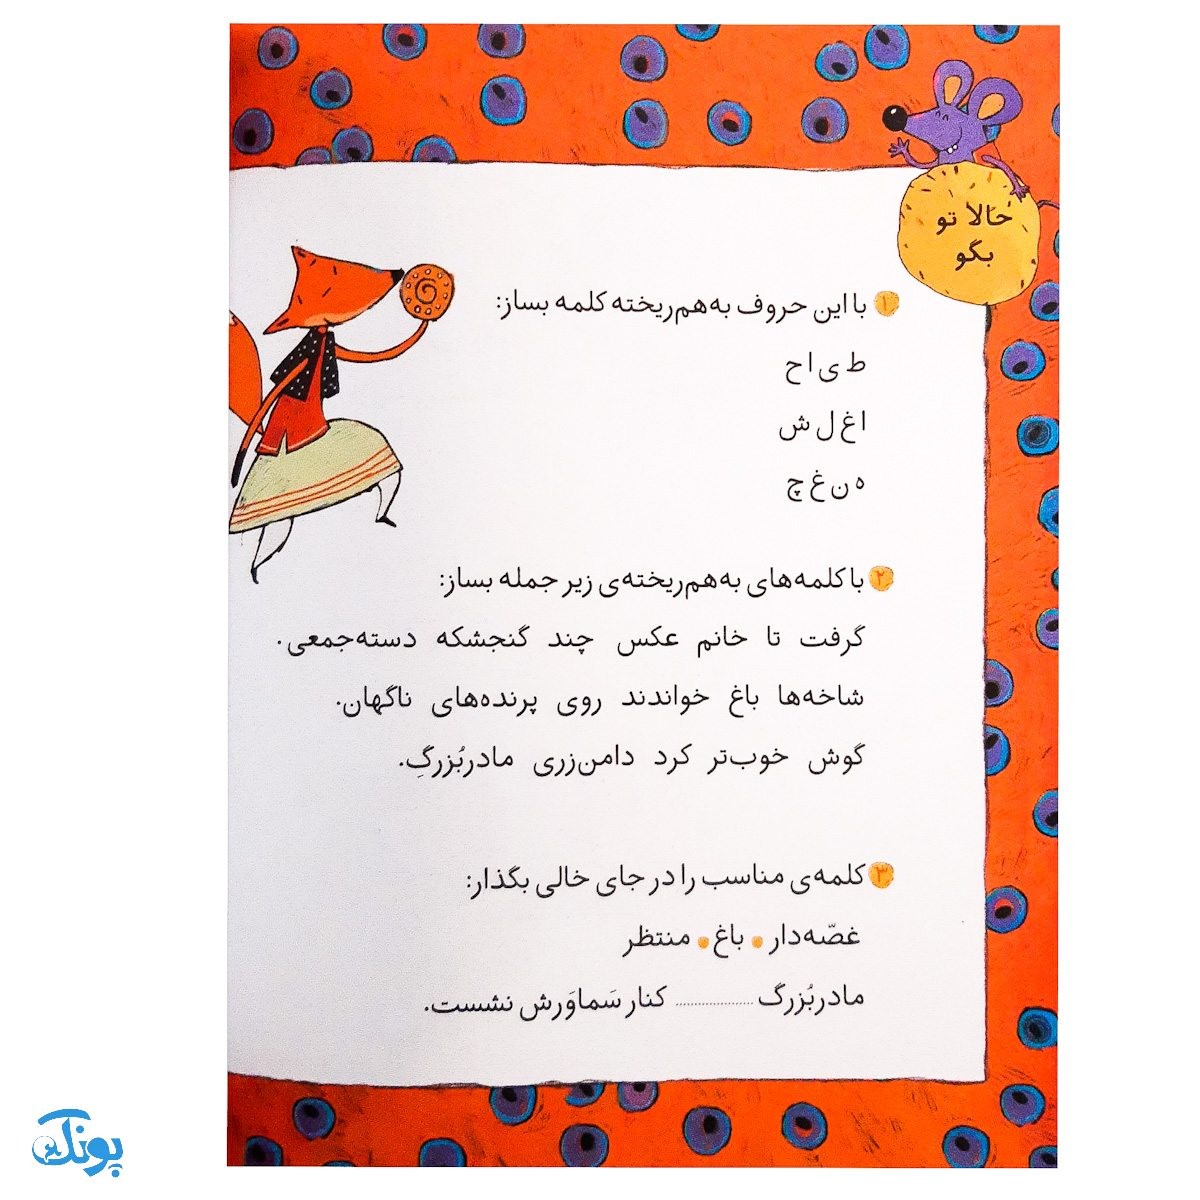 حالا تو
بگو
۱ با این حروف به‌هم‌ریخته کلمه بساز:
ط ی ا ح
ا غ ل ش
ه ن غ چ
۲ با کلمه‌های به‌هم‌ریخته‌ی زیر جمله بساز:
گرفت تا خانم عکس چند گنجشکه دسته‌جمعی.
شاخه‌ها باغ خواندند روی پرنده‌های ناگهان.
گوش خوب‌تر کرد دامن‌زری مادربُزرگِ.
۳ کلمه‌ی مناسب را در جای خالی بگذار:
غصّه‌دار • باغ • منتظر
مادربُزرگ .................... کنار سَماوَرش نشست.
پونک